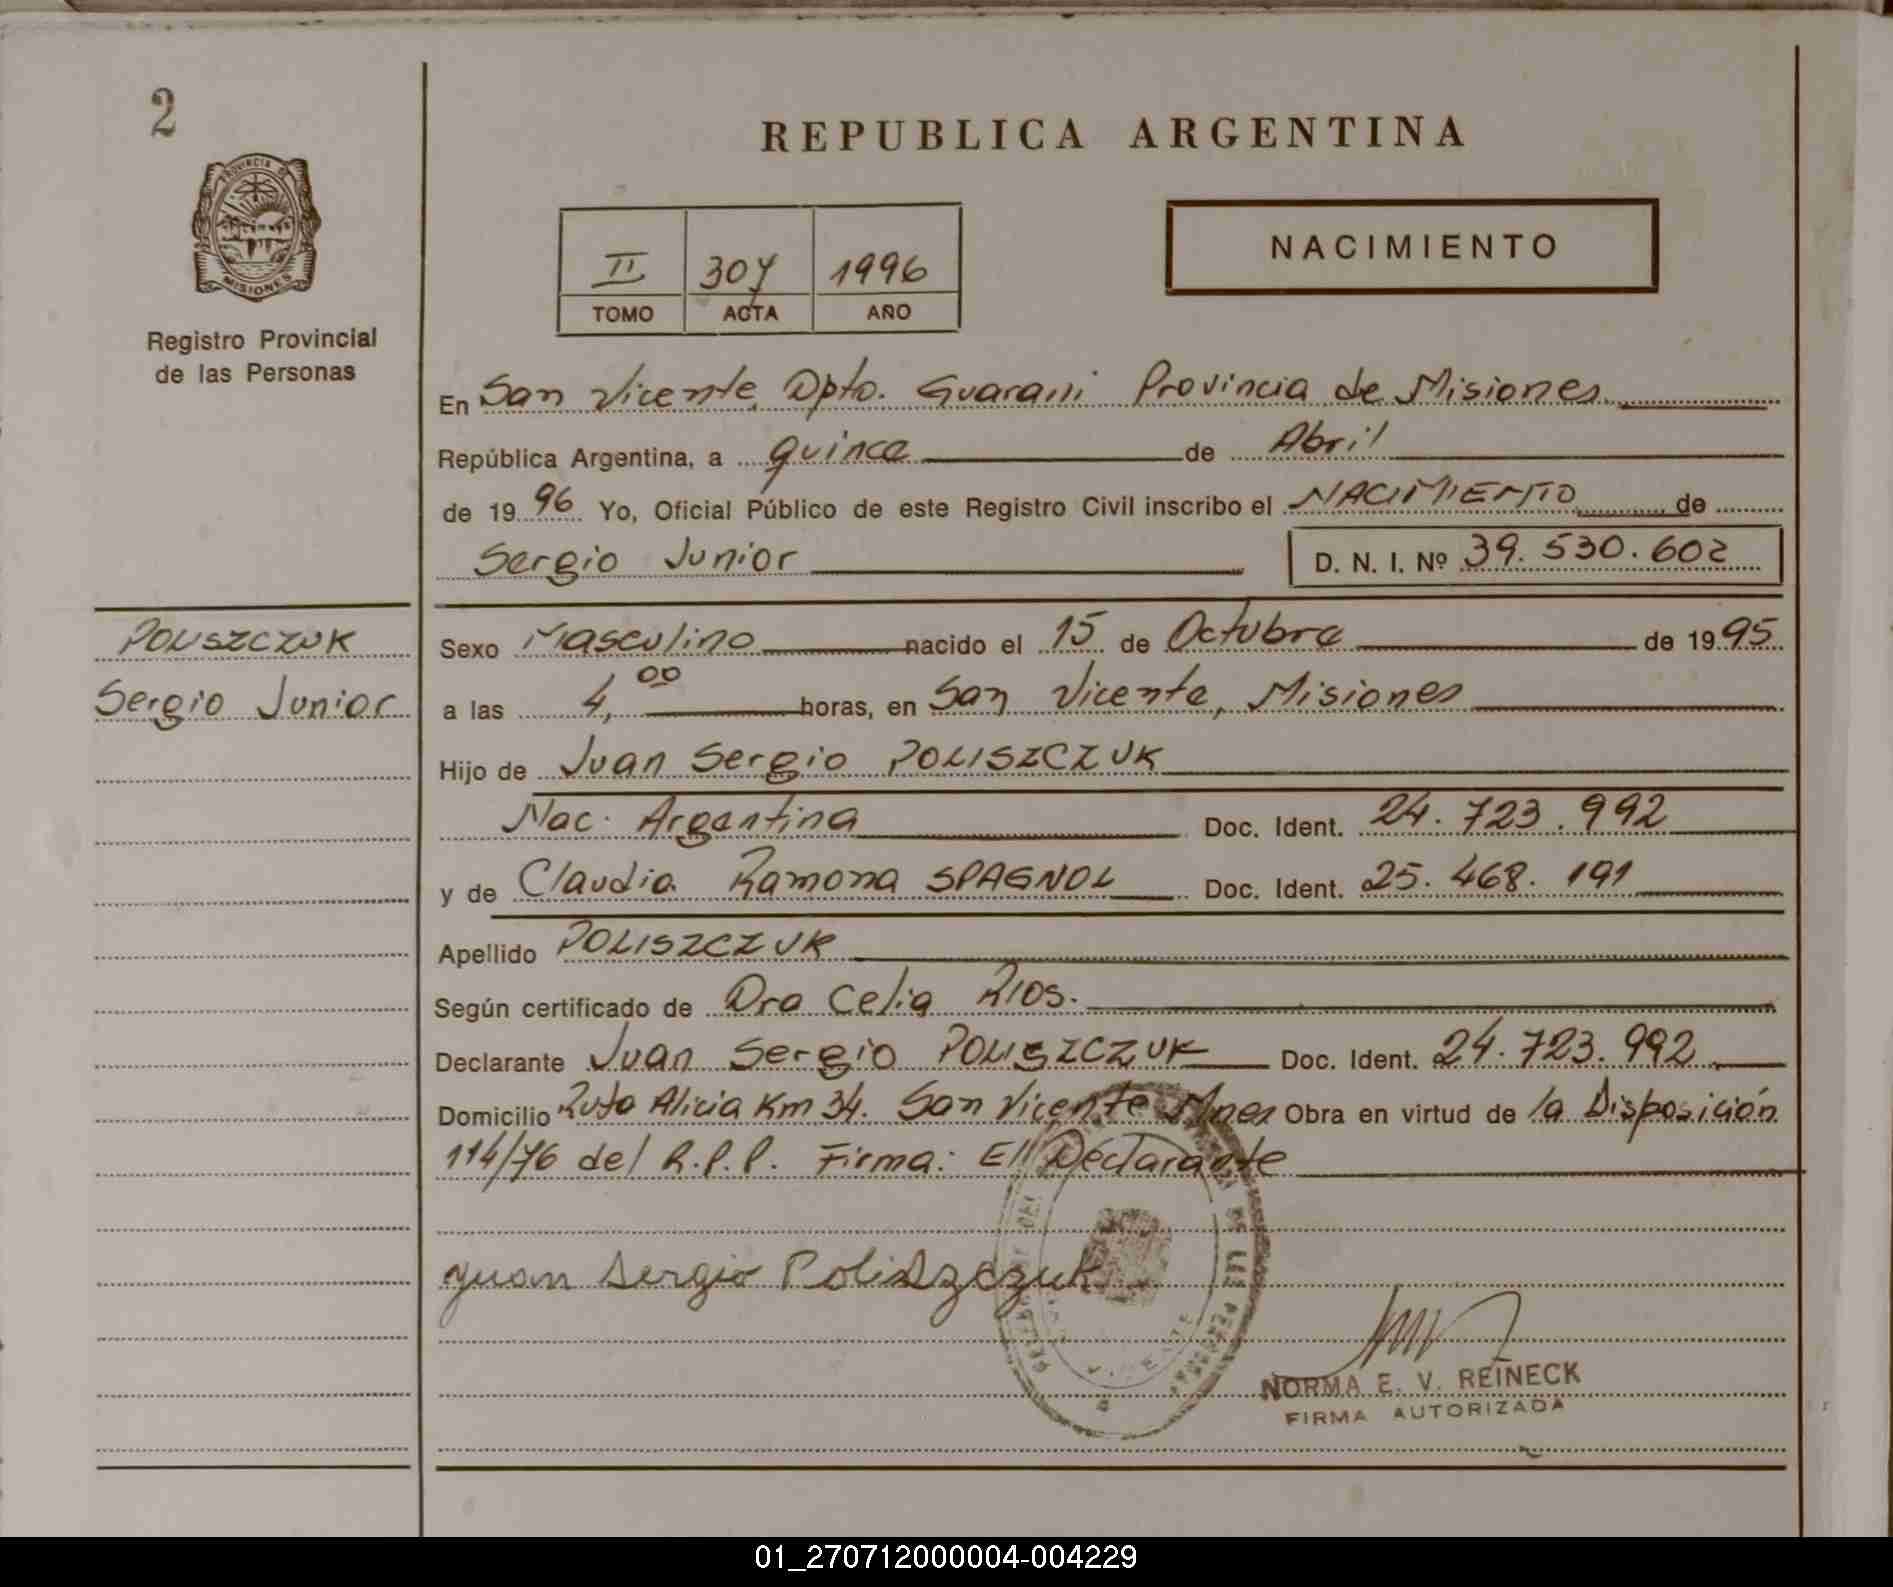 2
REPUBLICA ARGENTINA
PROVINCIA DE
MISIONES
Registro Provincial
de las Personas
NACIMIENTO
II 307 1996
TOMO ACTA AÑO
En San Vicente, Dpto. Guarani Provincia de Misiones
República Argentina, a quince de Abril
de 1996 Yo, Oficial Público de este Registro Civil inscribo el NACIMIENTO de
Sergio Junior D. N. I. Nº 39.530.602
POLISZCZUK
Sergio Junior
Sexo Masculino nacido el 15 de Octubre de 1995
a las 4,00 horas, en San Vicente, Misiones
Hijo de Juan Sergio POLISZCZUK
Nac. Argentina Doc. Ident. 24.723.992
y de Claudia Ramona SPAGNOL Doc. Ident. 25.468.191
Apellido POLISZCZUK
Según certificado de Dra Celia Rios.
Declarante Juan Sergio POLISZCZUK Doc. Ident. 24.723.992
Domicilio Ruta Alicia Km 34. San Vicente Mnes Obra en virtud de la Disposición
114/76 del R.P.P. Firma: El Declarante
Juan Sergio Poliszczuk
DE LAS PERSONAS
NORMA E. V. REINECK
FIRMA AUTORIZADA
01_270712000004-004229